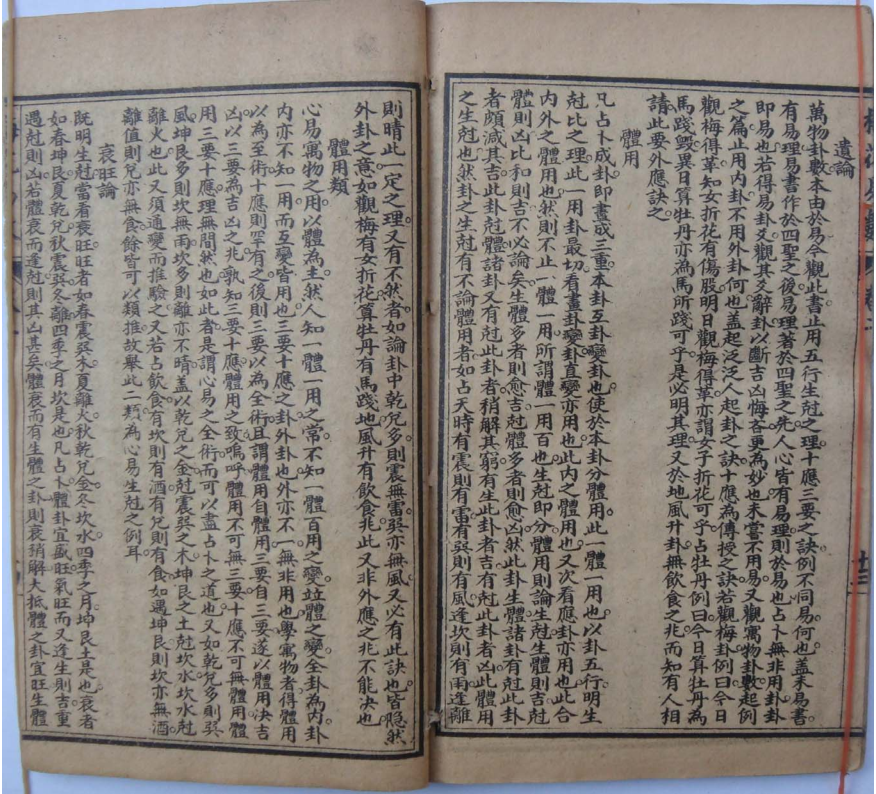 遺論
萬物卦數本由於易今觀此書止用五行生尅之理十應三要之訣例不同易何也蓋未易書
有易理易書作於四聖之後易理著於四聖之先人心皆有易理則於易也占卜無非用卦卦
即易也若得易卦爻觀其爻辭卦以斷吉凶悔吝更為妙也未嘗不用易又觀寓物卦數起例
之篇止用内卦不用外卦何也蓋起泛泛人起卦之訣十應為傳授之訣若觀梅卦例曰今日
觀梅得革知女折花有傷股明日觀梅得革亦謂女子折花可乎占牡丹例曰今日算牡丹為
馬踐毀異日算牡丹亦為馬所踐可乎是必明其理又於地風升卦無飲食之兆而知有人相
請此要外應訣之
體用
凡占卜成卦即畫成三重本卦互卦變卦也使於本卦分體用此一體一用也以卦五行明生
尅比之理此一用卦最切看畫卦變卦直變亦用也此内之體用也又次看應卦亦用也此合
内外之體用也然則不止一體一用所謂體一用百也生尅即分體用則論生尅生體則吉尅
體則凶比和則吉不必論矣生體多者則愈吉尅體多者則愈凶然此卦生體諸卦有尅此卦
者頗減其吉此卦尅體諸卦又有尅此卦者稍解其窮有生此卦者吉有尅此卦者凶此體用
之生尅也然卦之生尅有不論體用者如占天時有震則有雷有巽則有風逢坎則有雨逢離
則晴此一定之理又有不然者如論卦中乾兌多則震無雷巽亦無風又必有此訣也皆隐然
外卦之意如觀梅有女折花算牡丹有馬踐地風升有飲食兆此又非外應之兆不能决也
體用類
心易寓物之用以體為主然人知一體一用之常不知一體百用之變竝體之變全卦為内卦
内亦不知一用而互變皆用也三要十應之卦外卦也外亦不一無非用也學寓物者得體用
以為至術十應則罕有之後則三要以為全術且謂體用自體用三要自三要遂以體用决吉
凶以三要為吉凶之兆孰知三要十應體用之致嗚呼體用不可無三要十應不可無體用體
用三要十應理無間然也如此者是謂心易之全術而可以盡占卜之道也又如乾兌多則巽
風坤艮多則坎無雨坎多則離亦不晴蓋以乾兌之金尅震巽之木坤艮之土尅坎水坎水尅
離火也此又須通變而推驗之又若占飲食有坎則有酒有兌則有食如遇坤艮則坎亦無酒
離值則兌亦無食餘皆可以類推故舉此二類為心易生尅之例耳
衰旺論
既明生尅當看衰旺旺者如春震巽木夏離火秋乾兌金冬坎水四季之月坤艮土是也衰者
如春坤艮夏乾兌秋震巽冬離四季之月坎是也凡占卜體卦宜盛旺氣旺而又逢生則吉重
遇尅則凶若體衰而逢尅則其凶甚矣體衰而有生體之卦則衰稍解大抵體之卦宜旺生體